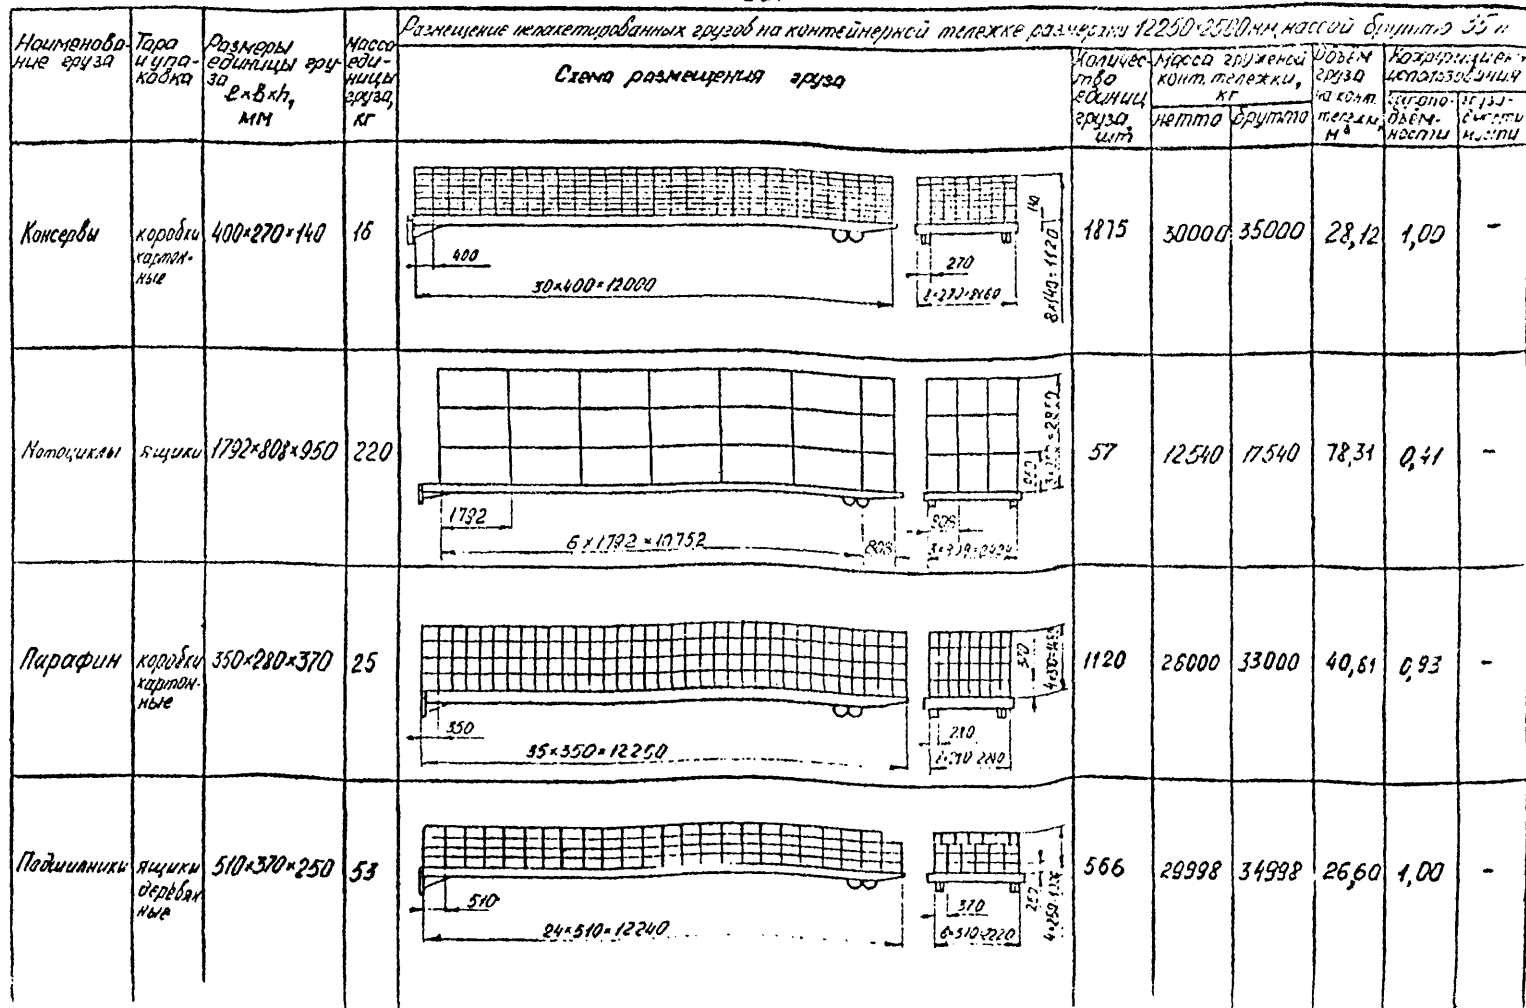 Размещение непакетированных грузов на контейнерной тележке размерами 12250×2500мм, массой брутто 35 т
Наименова-
ние груза
Тара
и упа-
ковка
Размеры
единицы гру-
за
l×b×h,
мм
Масса
еди-
ницы
груза,
кг
Схема размещения груза
Количес-
тво
единиц
груза,
шт
Масса груженой
конт. тележки,
кг
нетто
брутто
Объем
груза
на конт.
тележки,
м³
Коэффициент
использования
грузо-
подъем-
ности
Консервы
коробки
картон-
ные
400×270×140
16
400
30×400=12000
270
140
8×140=1120
1875
30000
35000
28,12
1,00
-
Мотоциклы
ящики
1792×808×950
220
1792
6×1792=10752
808
808
57
12540
17540
78,31
0,41
-
Парафин
коробки
картон-
ные
350×280×370
25
350
35×350=12250
370
1120
26000
33000
40,61
0,93
-
Подшипники
ящики
деревян
ные
510×370×250
53
510
24×510=12240
370
250
566
29998
34998
26,60
1,00
-